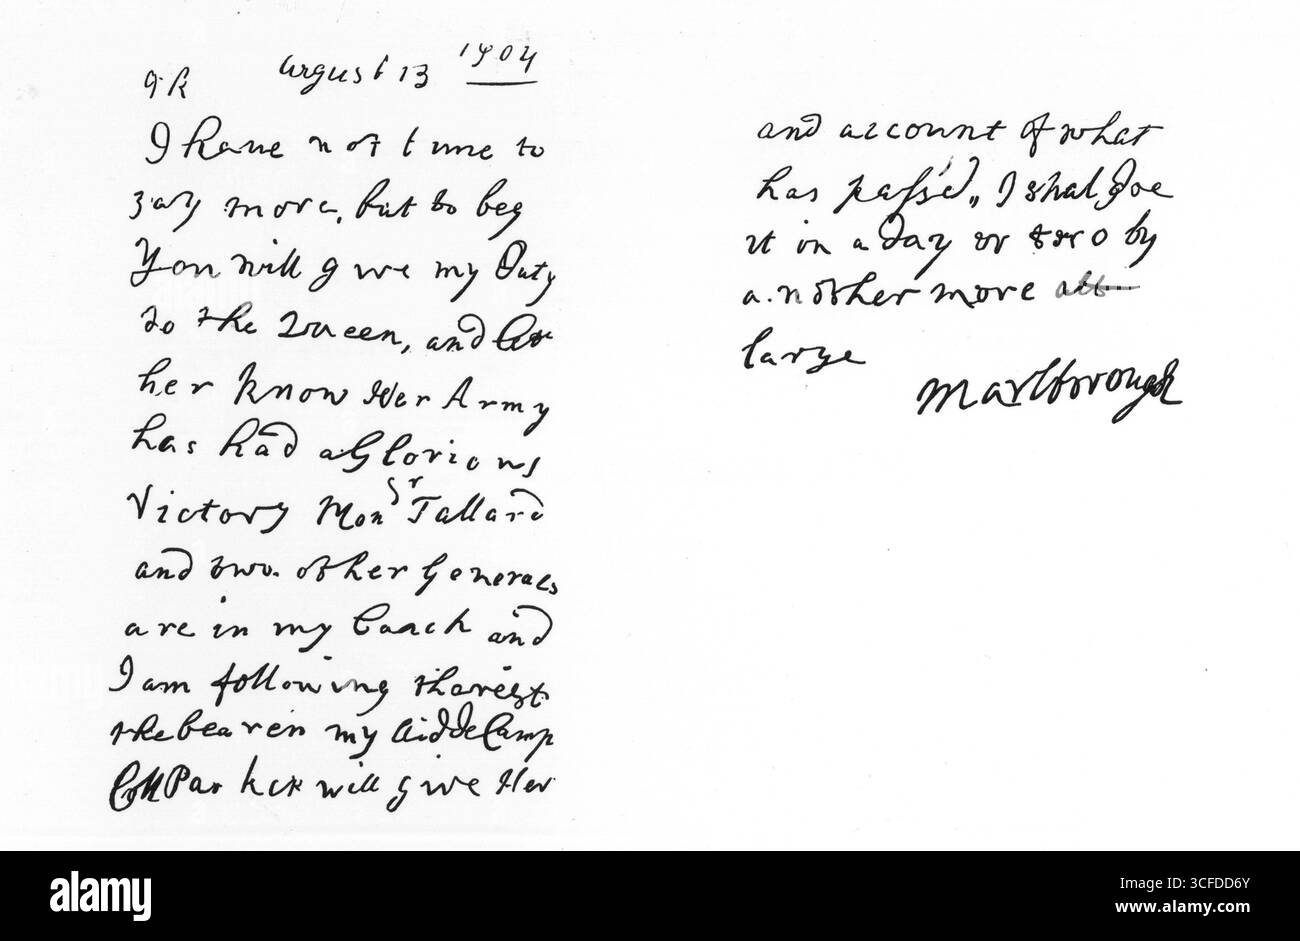 august 13 1704
I have not time to
say more, but to beg
You will give my Duty
to the Queen, and let
her know Her Army
has had a Glorious
Victory Monsr Tallard
and two other Generals
are in my Coach and
I am following the rest
the bearer my Aid de Camp
Coll Parker will give Her
and account of what
has pass'd, I shal doe
it in a day or two by
another more att
large
Marlborough
alamy
alamy
Image ID: 3CFDD6Y
www.alamy.com